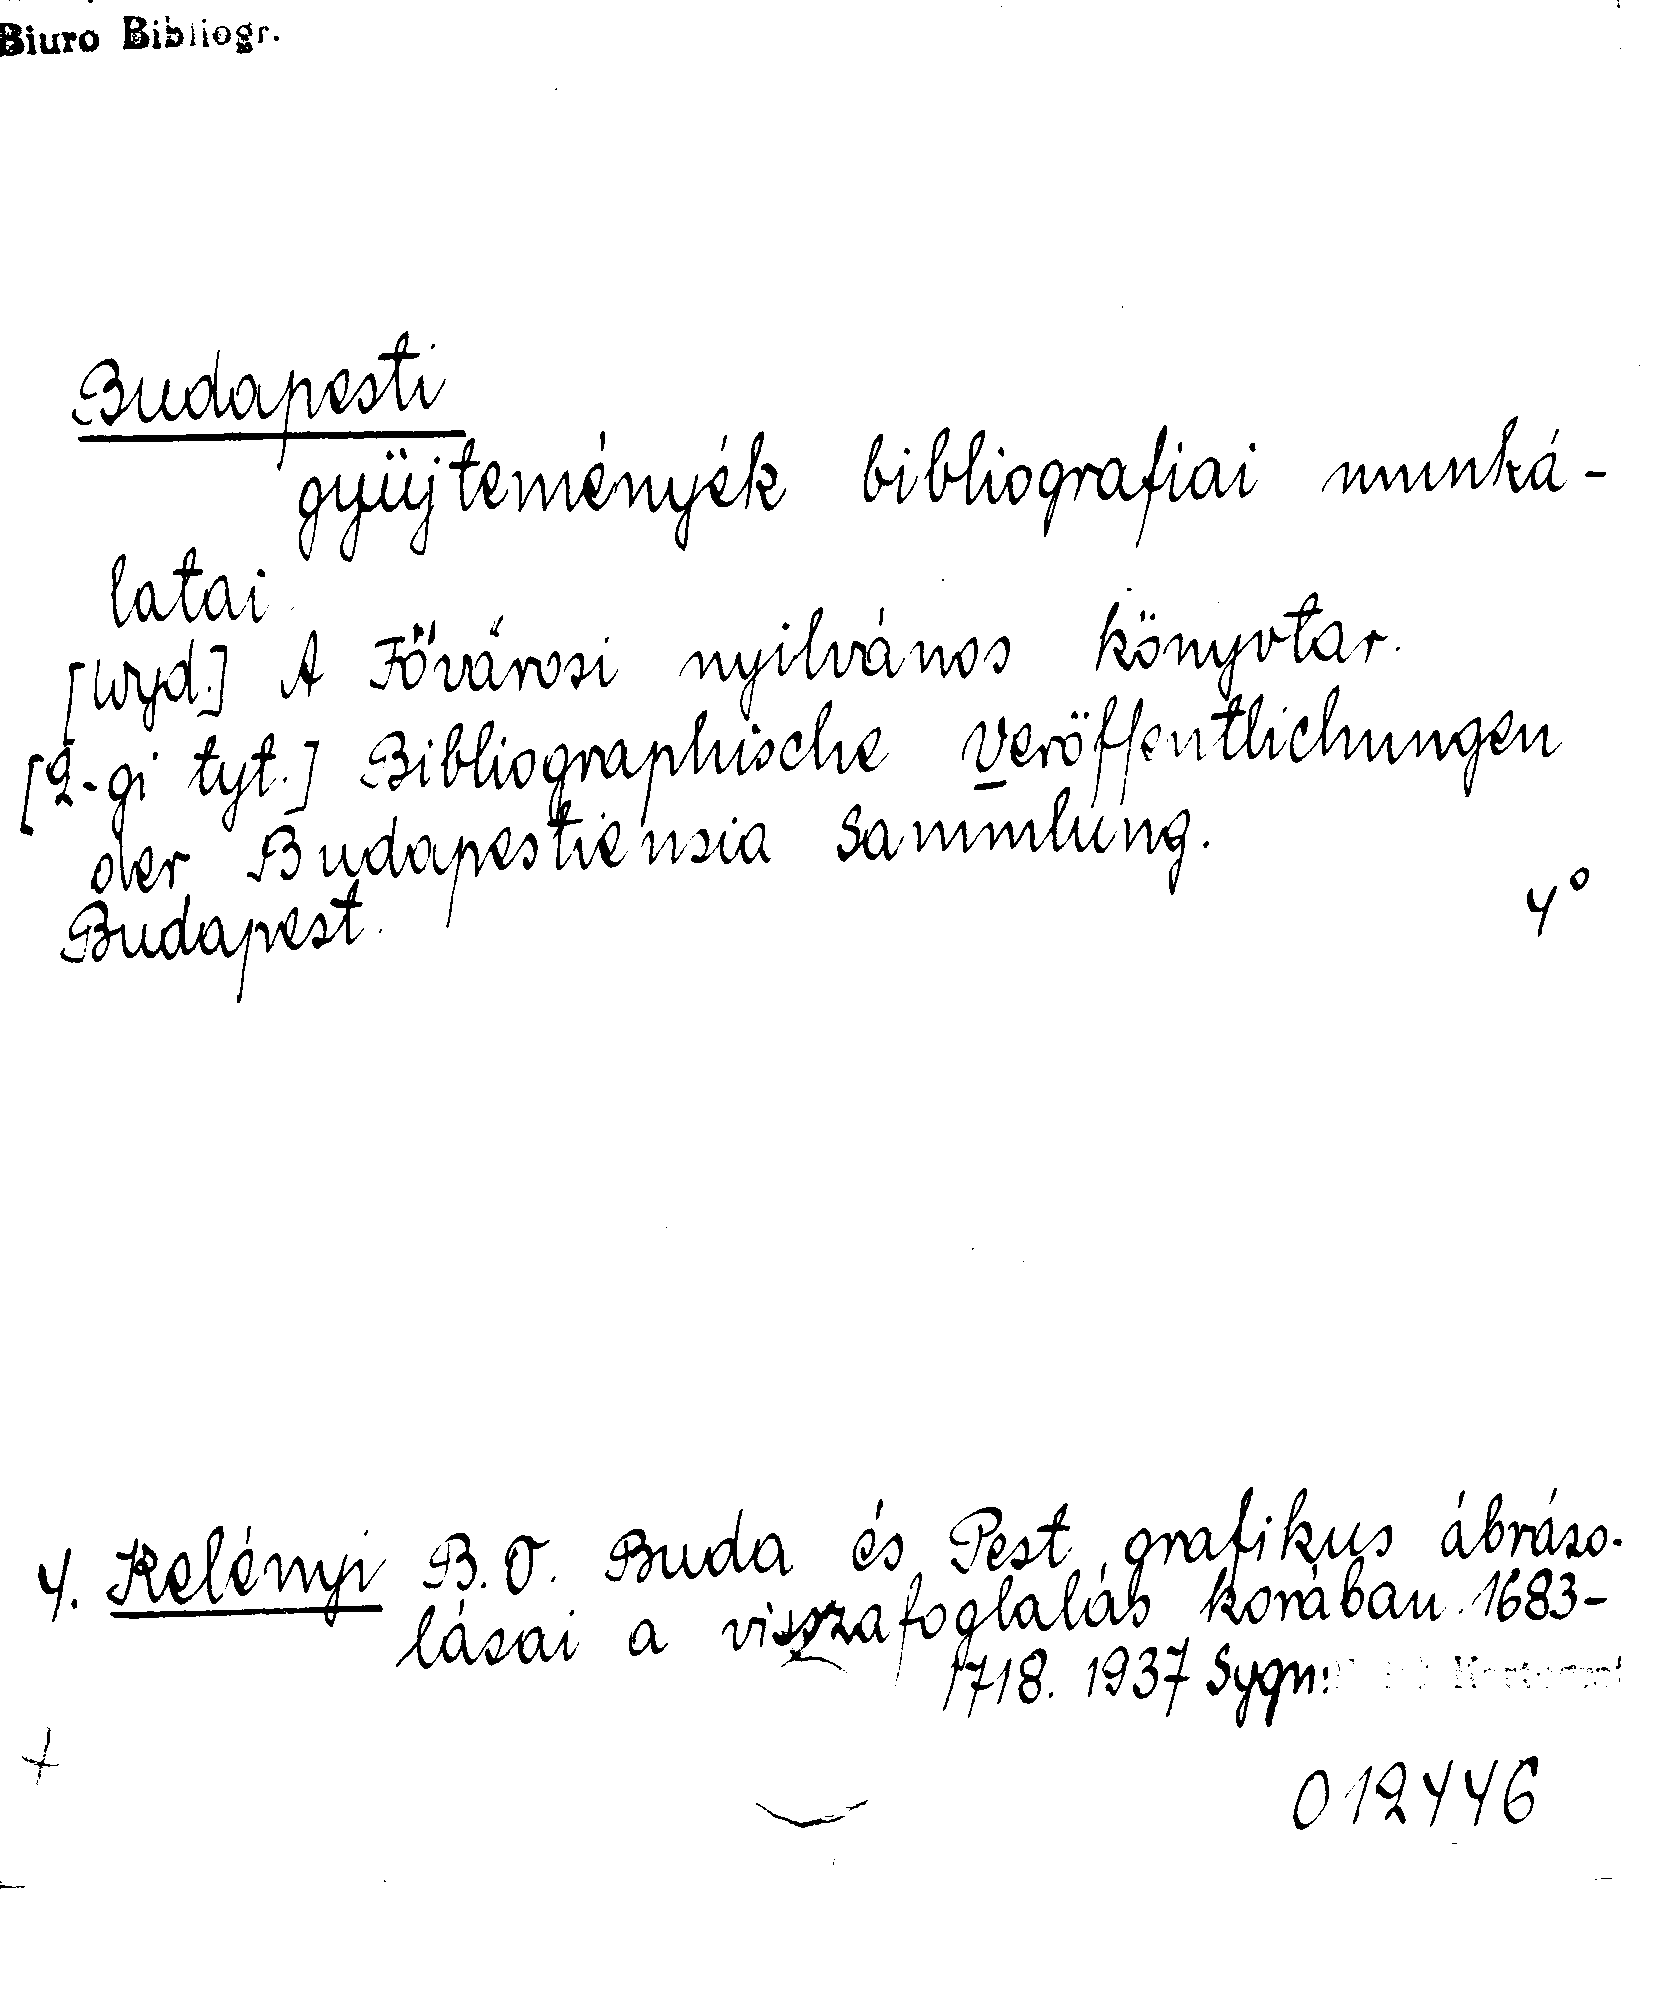 Biuro Bibliogr.
Budapesti
gyüjteményék bibliografiai munká-
latai
[wyd.] A Fővárosi nyilvános könyvtar.
[2-gi tyt.] Bibliographische Veröffentlichungen
der Budapestiensia Sammlung.
Budapest. 4°
4. Kelényi B.O. Buda és Pest grafikus ábrázo-
lásai a visszafoglalás korában 1683-
1718. 1937 Sygn:
012446